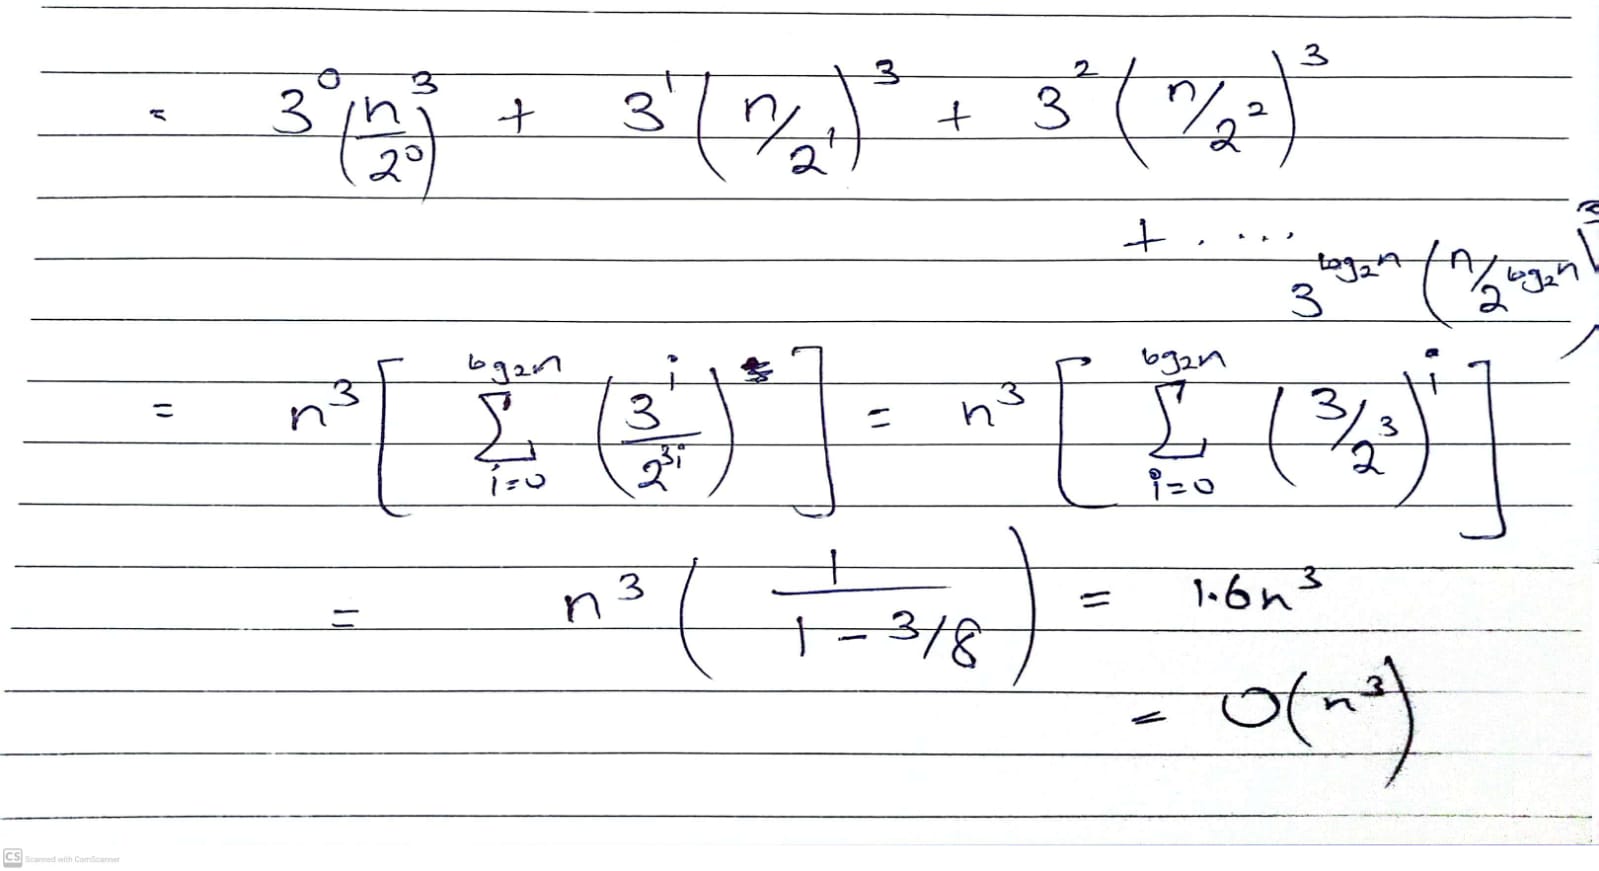 = 3^0 (n/2^0)^3 + 3^1 (n/2^1)^3 + 3^2 (n/2^2)^3
+ .....
3^{log_2 n} (n/2^{log_2 n})^3
= n^3 [ Σ_{i=0}^{log_2 n} (3^i / 2^{3i}) ] = n^3 [ Σ_{i=0}^{log_2 n} (3/2^3)^i ]
= n^3 ( 1 / (1 - 3/8) ) = 1.6n^3
= O(n^3)
CS Scanned with CamScanner